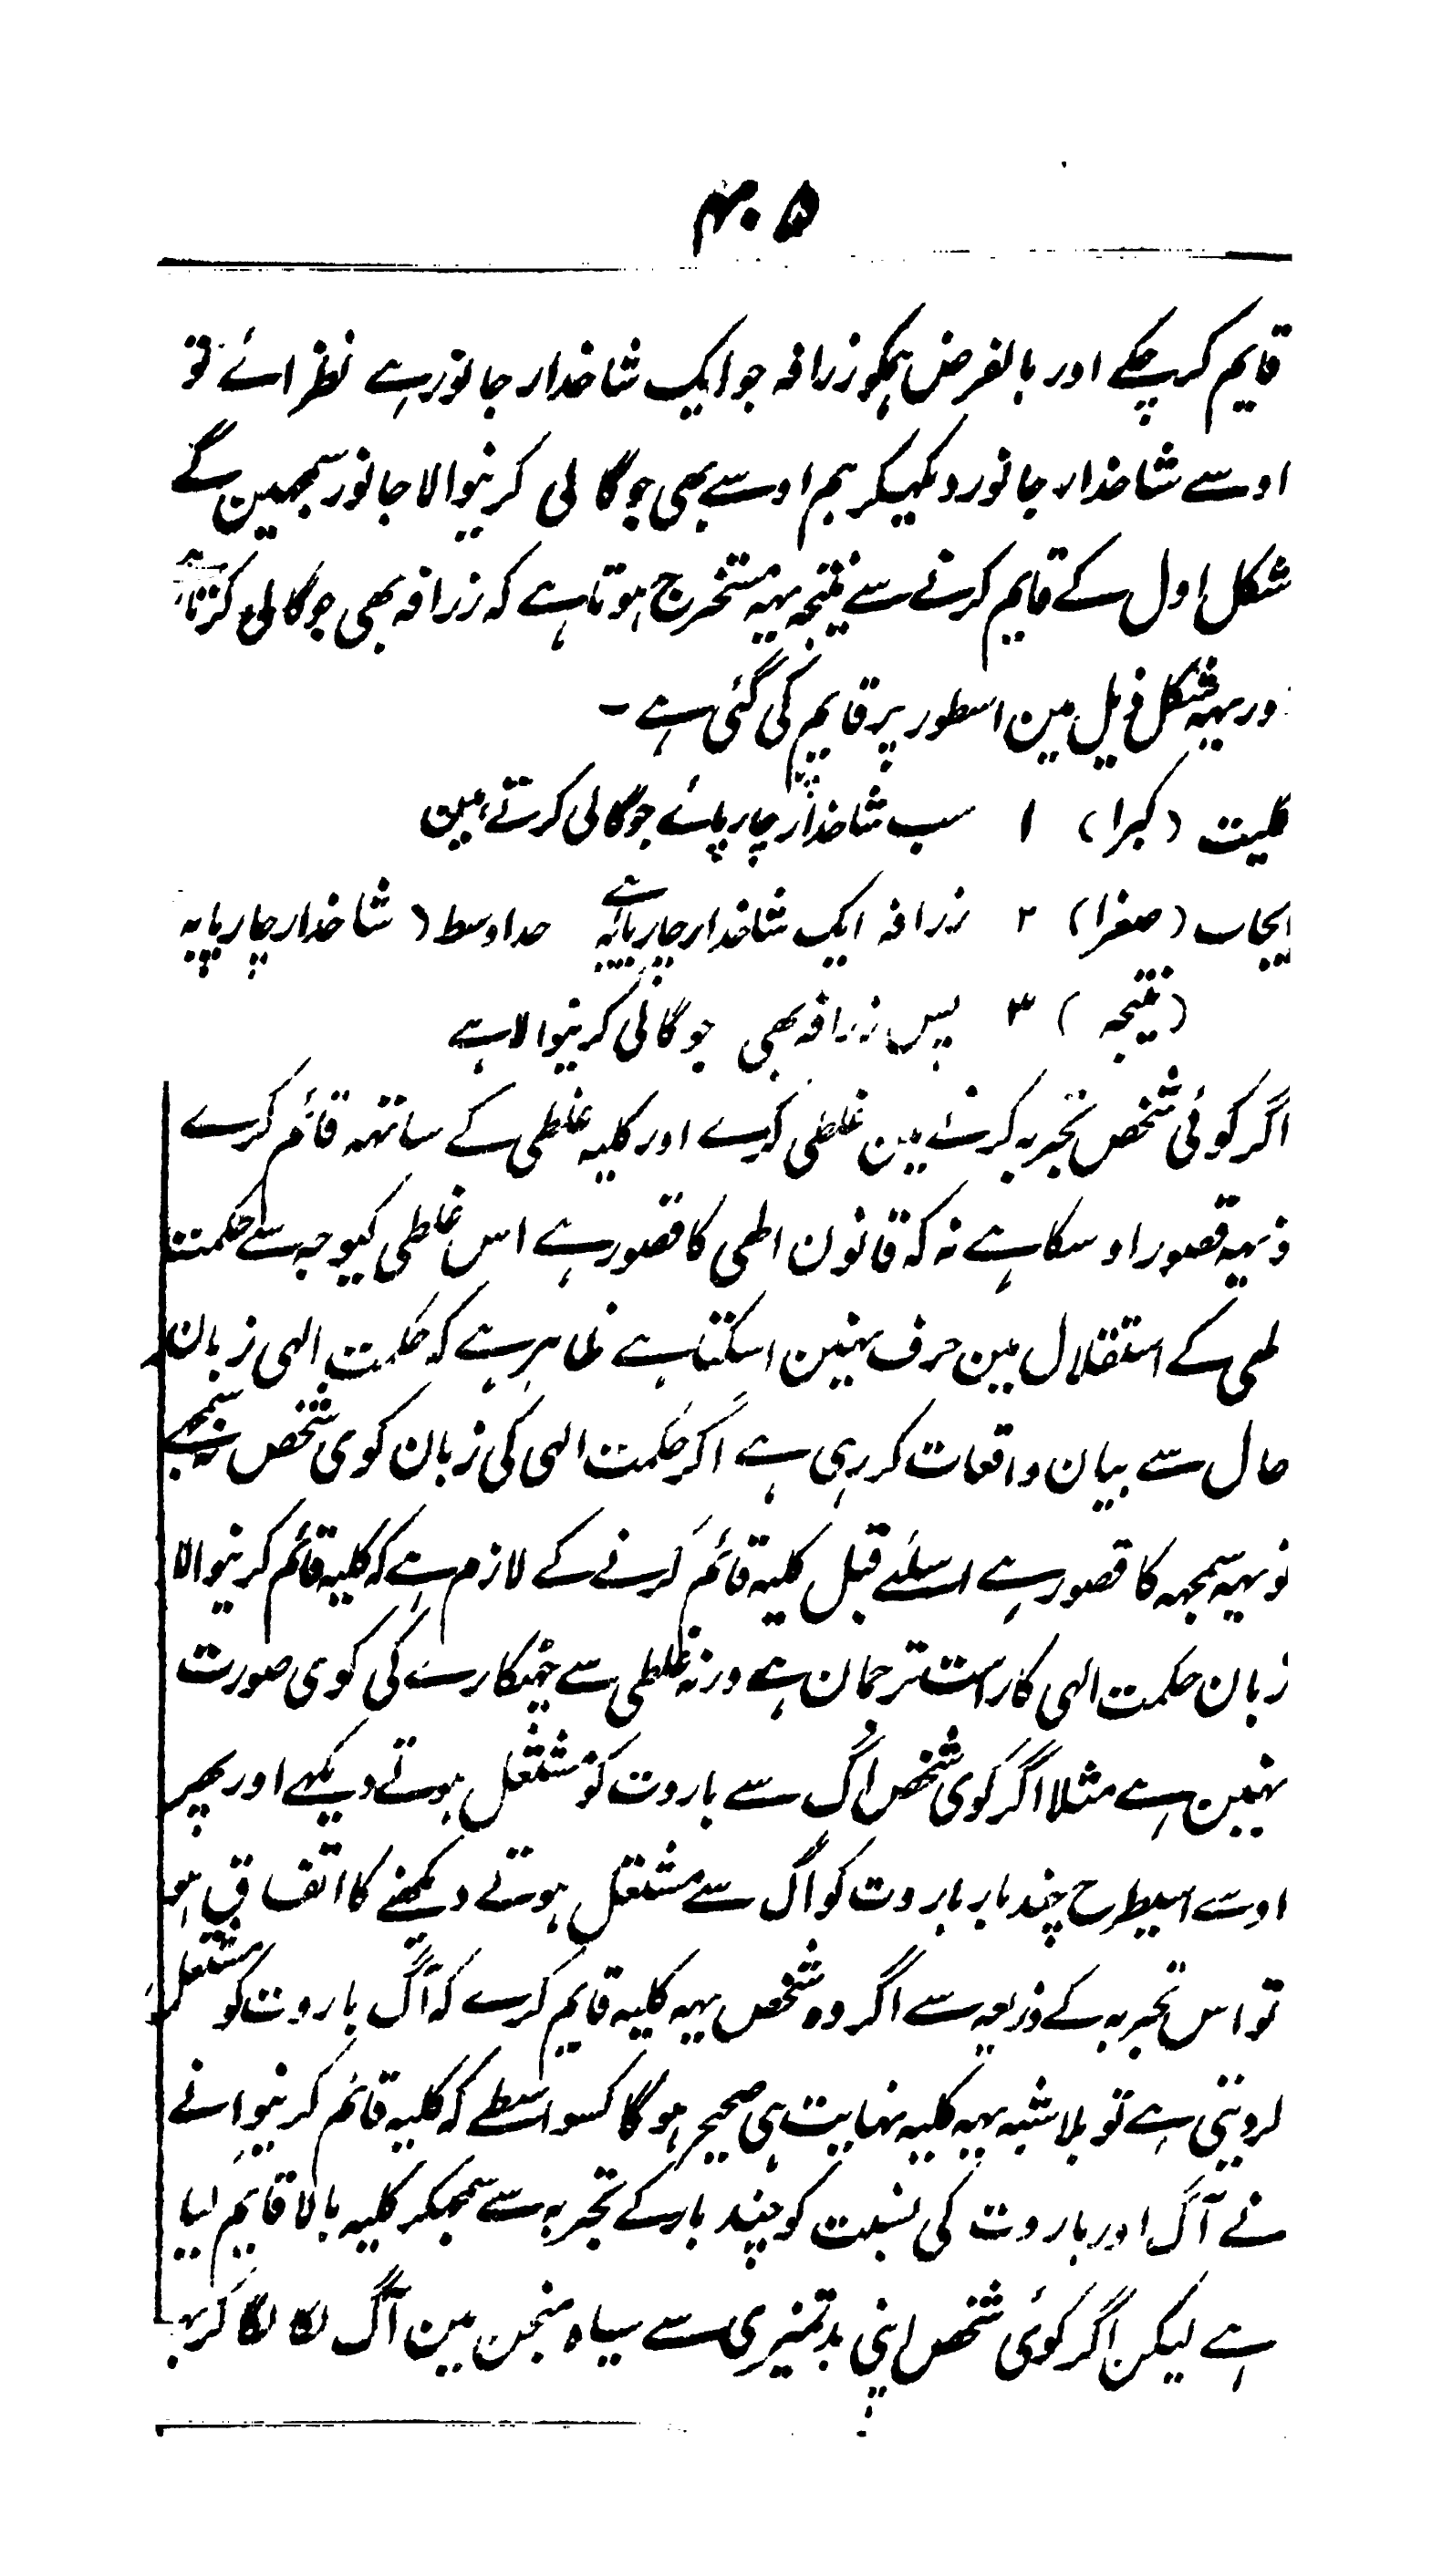 ۴۰۵
قایم کرچکے اور بالفرض ہمکو زرافہ جو ایک شاخدار جانور ہے نظر ائے تو
اوسے شاخدار جانور دیکہیکر ہم اوسے بھی جوگالی کرنیوالا جانور سمجہین گے
شکل اول کے قایم کرنے سے نتیجہ یہہ مستخرج ہوتا ہے کہ زرافہ بھی جوگالی کرتا ہے
ور یہہ شکل ذیل مین اسطور پر قایم کی گئی ہے ۔
کلیت (کبرا) ۱ سب شاخدار چارپائے جوگالی کرتے ہین
ایجاب (صغرا) ۲ زرافہ ایک شاخدار چارپایہ ہے حد اوسط (شاخدار چارپایہ
(نتیجہ) ۳ پس زرافہ بھی جوگالی کرنیوالا ہے
اگر کوئی شخص تجربہ کرنے مین غلطی کرے اور کلیہ غلطی کے ساتہہ قائم کرے
و یہہ قصور اوسکا ہے نہ کہ قانون الھی کا قصور ہے اس غلطی کیوجہ سے حکمت
لھی کے استقلال مین حرف نہین اسکتا ہے ظاہر ہے کہ حکمت الہی زبان
حال سے بیان واقعات کر رہی ہے اگر حکمت الہی کی زبان کوی شخص نہ سمجہے
تو یہہ سمجہہ کا قصور ہے اسلئے قبل کلیہ قائم کرنے کے لازم ہے کہ کلیہ قائم کرنیوالا
زبان حکمت الہی کا راست ترجمان ہے ورنہ غلطی سے چہٹکارے کی کوی صورت
نہین ہے مثلا اگر کوی شخص اگ سے باروت کو مشتعل ہوتے دیکہے اور پھر
اوسے اسیطرح چند بار باروت کو اگ سے مشتعل ہوتے دیکھنے کا اتفاق ہو
تو اس تجربہ کے ذریعہ سے اگر وہ شخص یہہ کلیہ قایم کرے کہ آگ باروت کو مشتعل
کر دیتی ہے تو بلا شبہ یہہ کلیہ نہایت ہی صحیح ہوگا کسواسطے کہ کلیہ قائم کرنیوالے
نے آگ اور باروت کی نسبت کو چند بار کے تجربہ سے سمجہکر کلیہ بالا قایم کیا
ہے لیکن اگر کوئی شخص اپنی بدتمیزی سے سیاہ منجن مین آگ لگا لگا کر یہہ